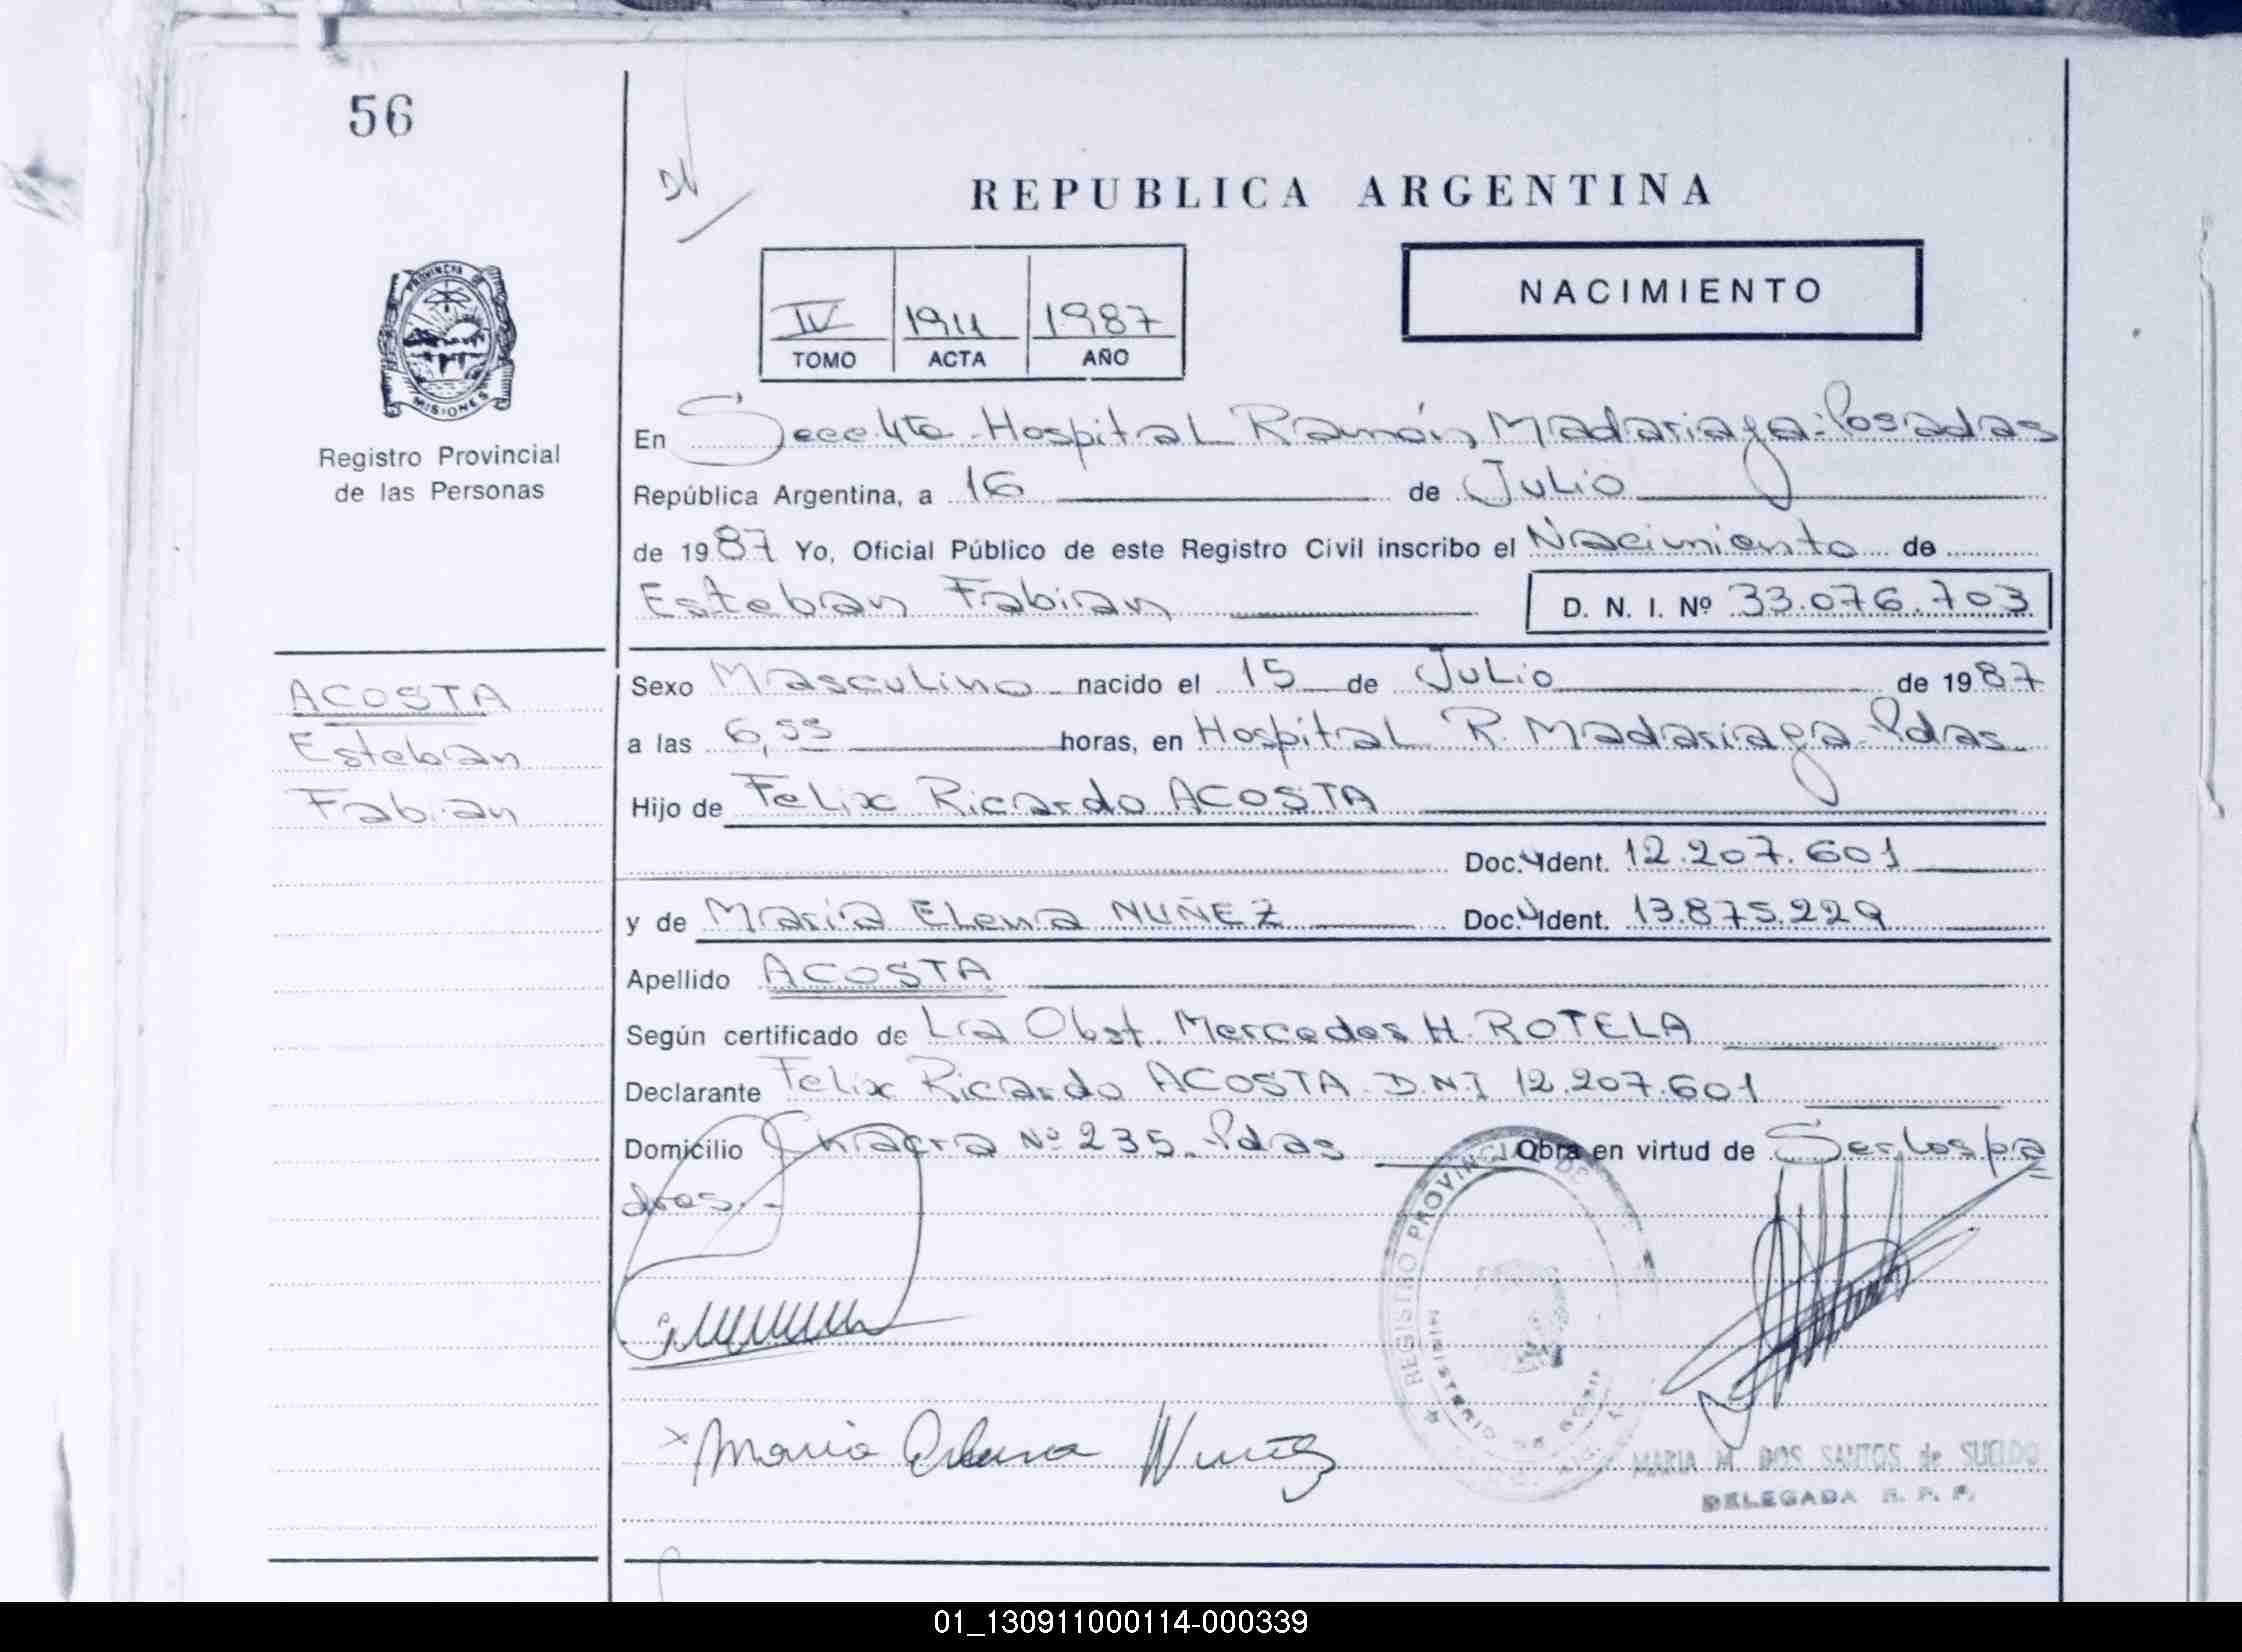 56
DV
REPUBLICA ARGENTINA
NACIMIENTO
IV 1911 1987
TOMO ACTA AÑO
PROVINCIA DE
MISIONES
Registro Provincial
de las Personas
En Secc 4ta Hospital Ramón Madariaga-Posadas
República Argentina, a 16 de Julio
de 1987 Yo, Oficial Público de este Registro Civil inscribo el Nacimiento de
Esteban Fabian D. N. I. Nº 33.076.703
ACOSTA
Esteban
Fabian
Sexo Masculino nacido el 15 de Julio de 1987
a las 6,55 horas, en Hospital R. Madariaga-Pdas
Hijo de Felix Ricardo ACOSTA
Doc. Ident. 12.207.601
y de María Elena NUÑEZ Doc. Ident. 13.875.229
Apellido ACOSTA
Según certificado de La Obst. Mercedes H. ROTELA
Declarante Felix Ricardo ACOSTA D.N.I 12.207.601
Domicilio Chacra Nº 235. Pdas Obra en virtud de Ser los pa
dres.-
REGISTRO PROVINCIAL DE
MINISTERIO DE
Maria Elena Nuñez
MARIA M. DOS SANTOS de SUELDO
DELEGADA R. P. P.
01_130911000114-000339